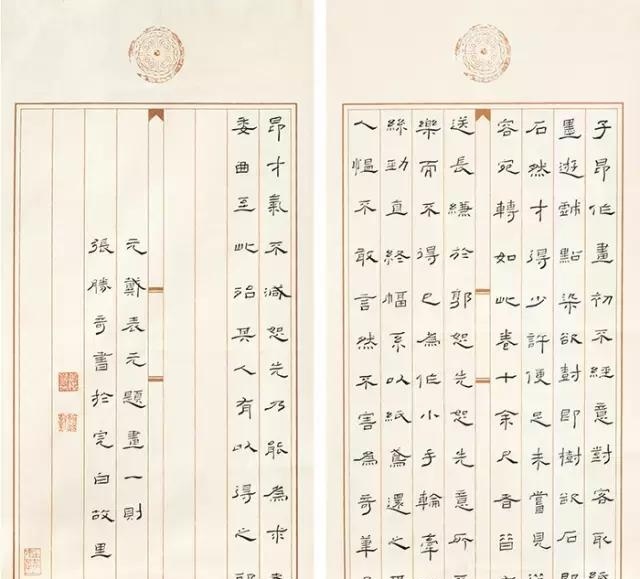 子昂作畫初不經意對客取紙
墨遊戲點染欲尌即樹欲石
石然才得少許便足未嘗見
容宛轉如此卷十余尺者昔
送長縑於郭恕先恕先意所
樂而不得已為作小手輪牽
絲勁直終幅系以紙鳶還之
人慍不敢言然不害為奇筆
昂才氣不減恕先乃能為求者
委曲至此殆其人有以得之耶
元戴表元題畫一則
張勝奇書於完白故里